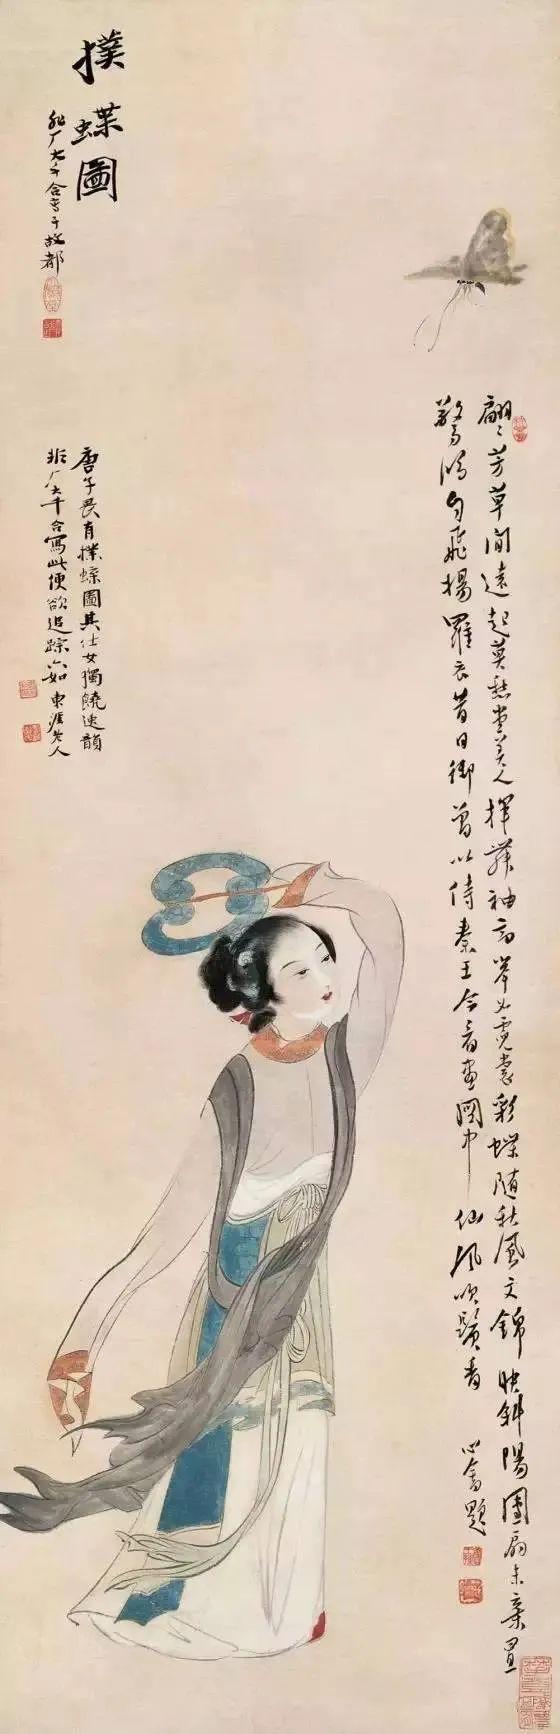 撲蝶圖
非厂大千合寫于故都
唐子畏有撲蝶圖其仕女獨饒逸韻
非厂大千合寫此便欲追踪六如 東涯老人
翩翩芳草間遠起莫愁堂美人揮舞袖高舉如霓裳彩蝶隨秋風文錦映斜陽團扇未棄置
驚鴻自飛揚羅衣昔日御曾以侍秦王今看畫圖中仙風吹鬢香
心畬題